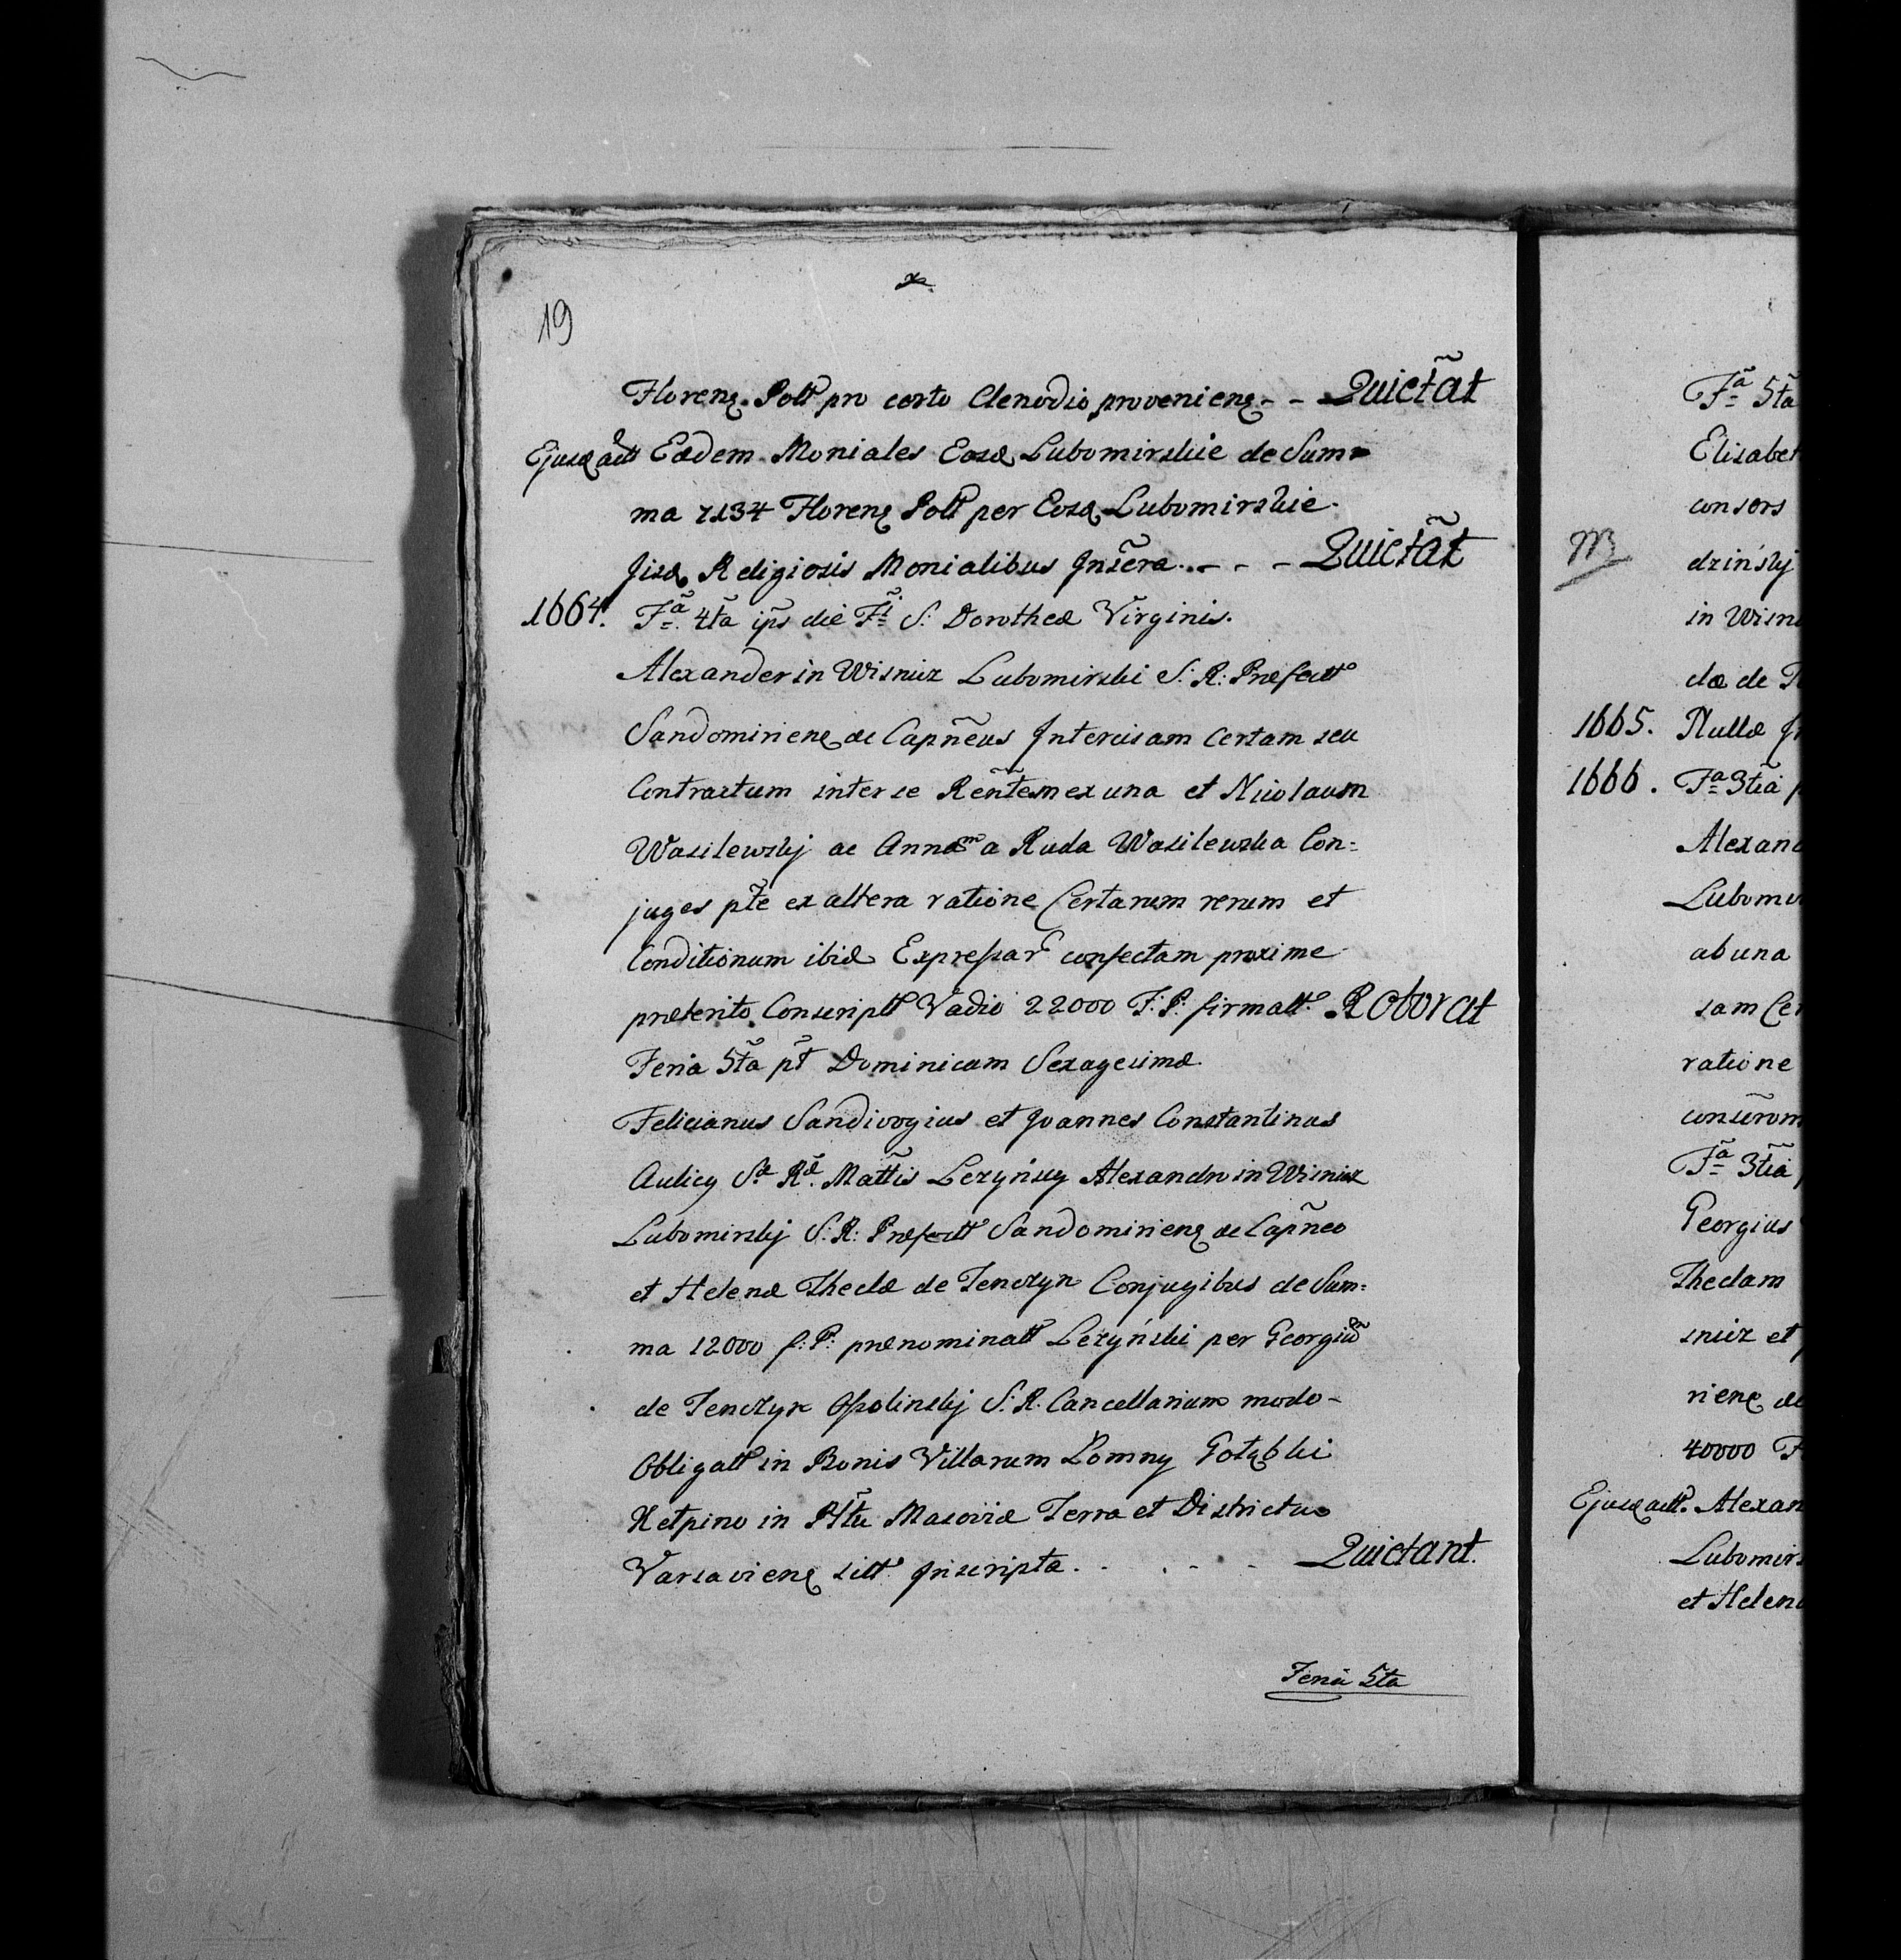 19
Florenȩ Poltt pro certo Clenodio provenienȩ - - Quictãt
Ejusd actt Eædem Moniales Eosd Lubomirskie de Sum=
ma 7134 Florenȩ Poltt per Eosd Lubomirskie
Jisd Religiosis Monialibus Jnsẽra. - - - Quictãt
1664. Fã 4tã ips die Fti S: Dorotheæ Virginis.
Alexander in Wisnicz Lubomirski S: R: Præfectt
Sandomirienȩ ac Capñeus Jntercisam Certam seu
Contractum inter se Reñtem ex una et Nicolaum
Wasilewskj ac Annam a Ruda Wasilewska Con=
juges pte ex altera ratione Certarum rerum et
Conditionum ibid Expressar confectam proxime
præterito Conscriptt Vadio 22000 F: P: firmatt. Roborat
Feria 5tã pt Dominicam Sexagesimæ
Felicianus Sandivogius et Joannes Constantinus
Aulicy Sæ Ræ Mattis Lezyńscy Alexandro in Wisnicz
Lubomirskj S: R: Præfectt Sandomirienȩ ac Capñeo
et Helenæ Theclæ de Tenczyn Conjugibus de Sum=
ma 12000 f: P: prænominatt Lezyński per Georgiũ
de Tenczyn Ossolinskj S. R. Cancellarium modo
Obligatt in Bonis Villarum Łomny Gołąbki
Kełpino in Pttu Masoviæ Terra et Districtu
Varsavienȩ sitt Jnscripta. - - - - Quictant.
Feria 5ta
Fã 5tã
Elisabet
consors
dzińskj
in Wisni
clæ de
1665. Nullæ
1666. Fã 3tiã
Alexand
Lubomir
ab una
sam Cer
ratione
Fã 3tiã
Georgius
Theclam
snicz et
rienȩ ac
40000 F
Ejusd actt. Alexan
Lubomirs
et Helen